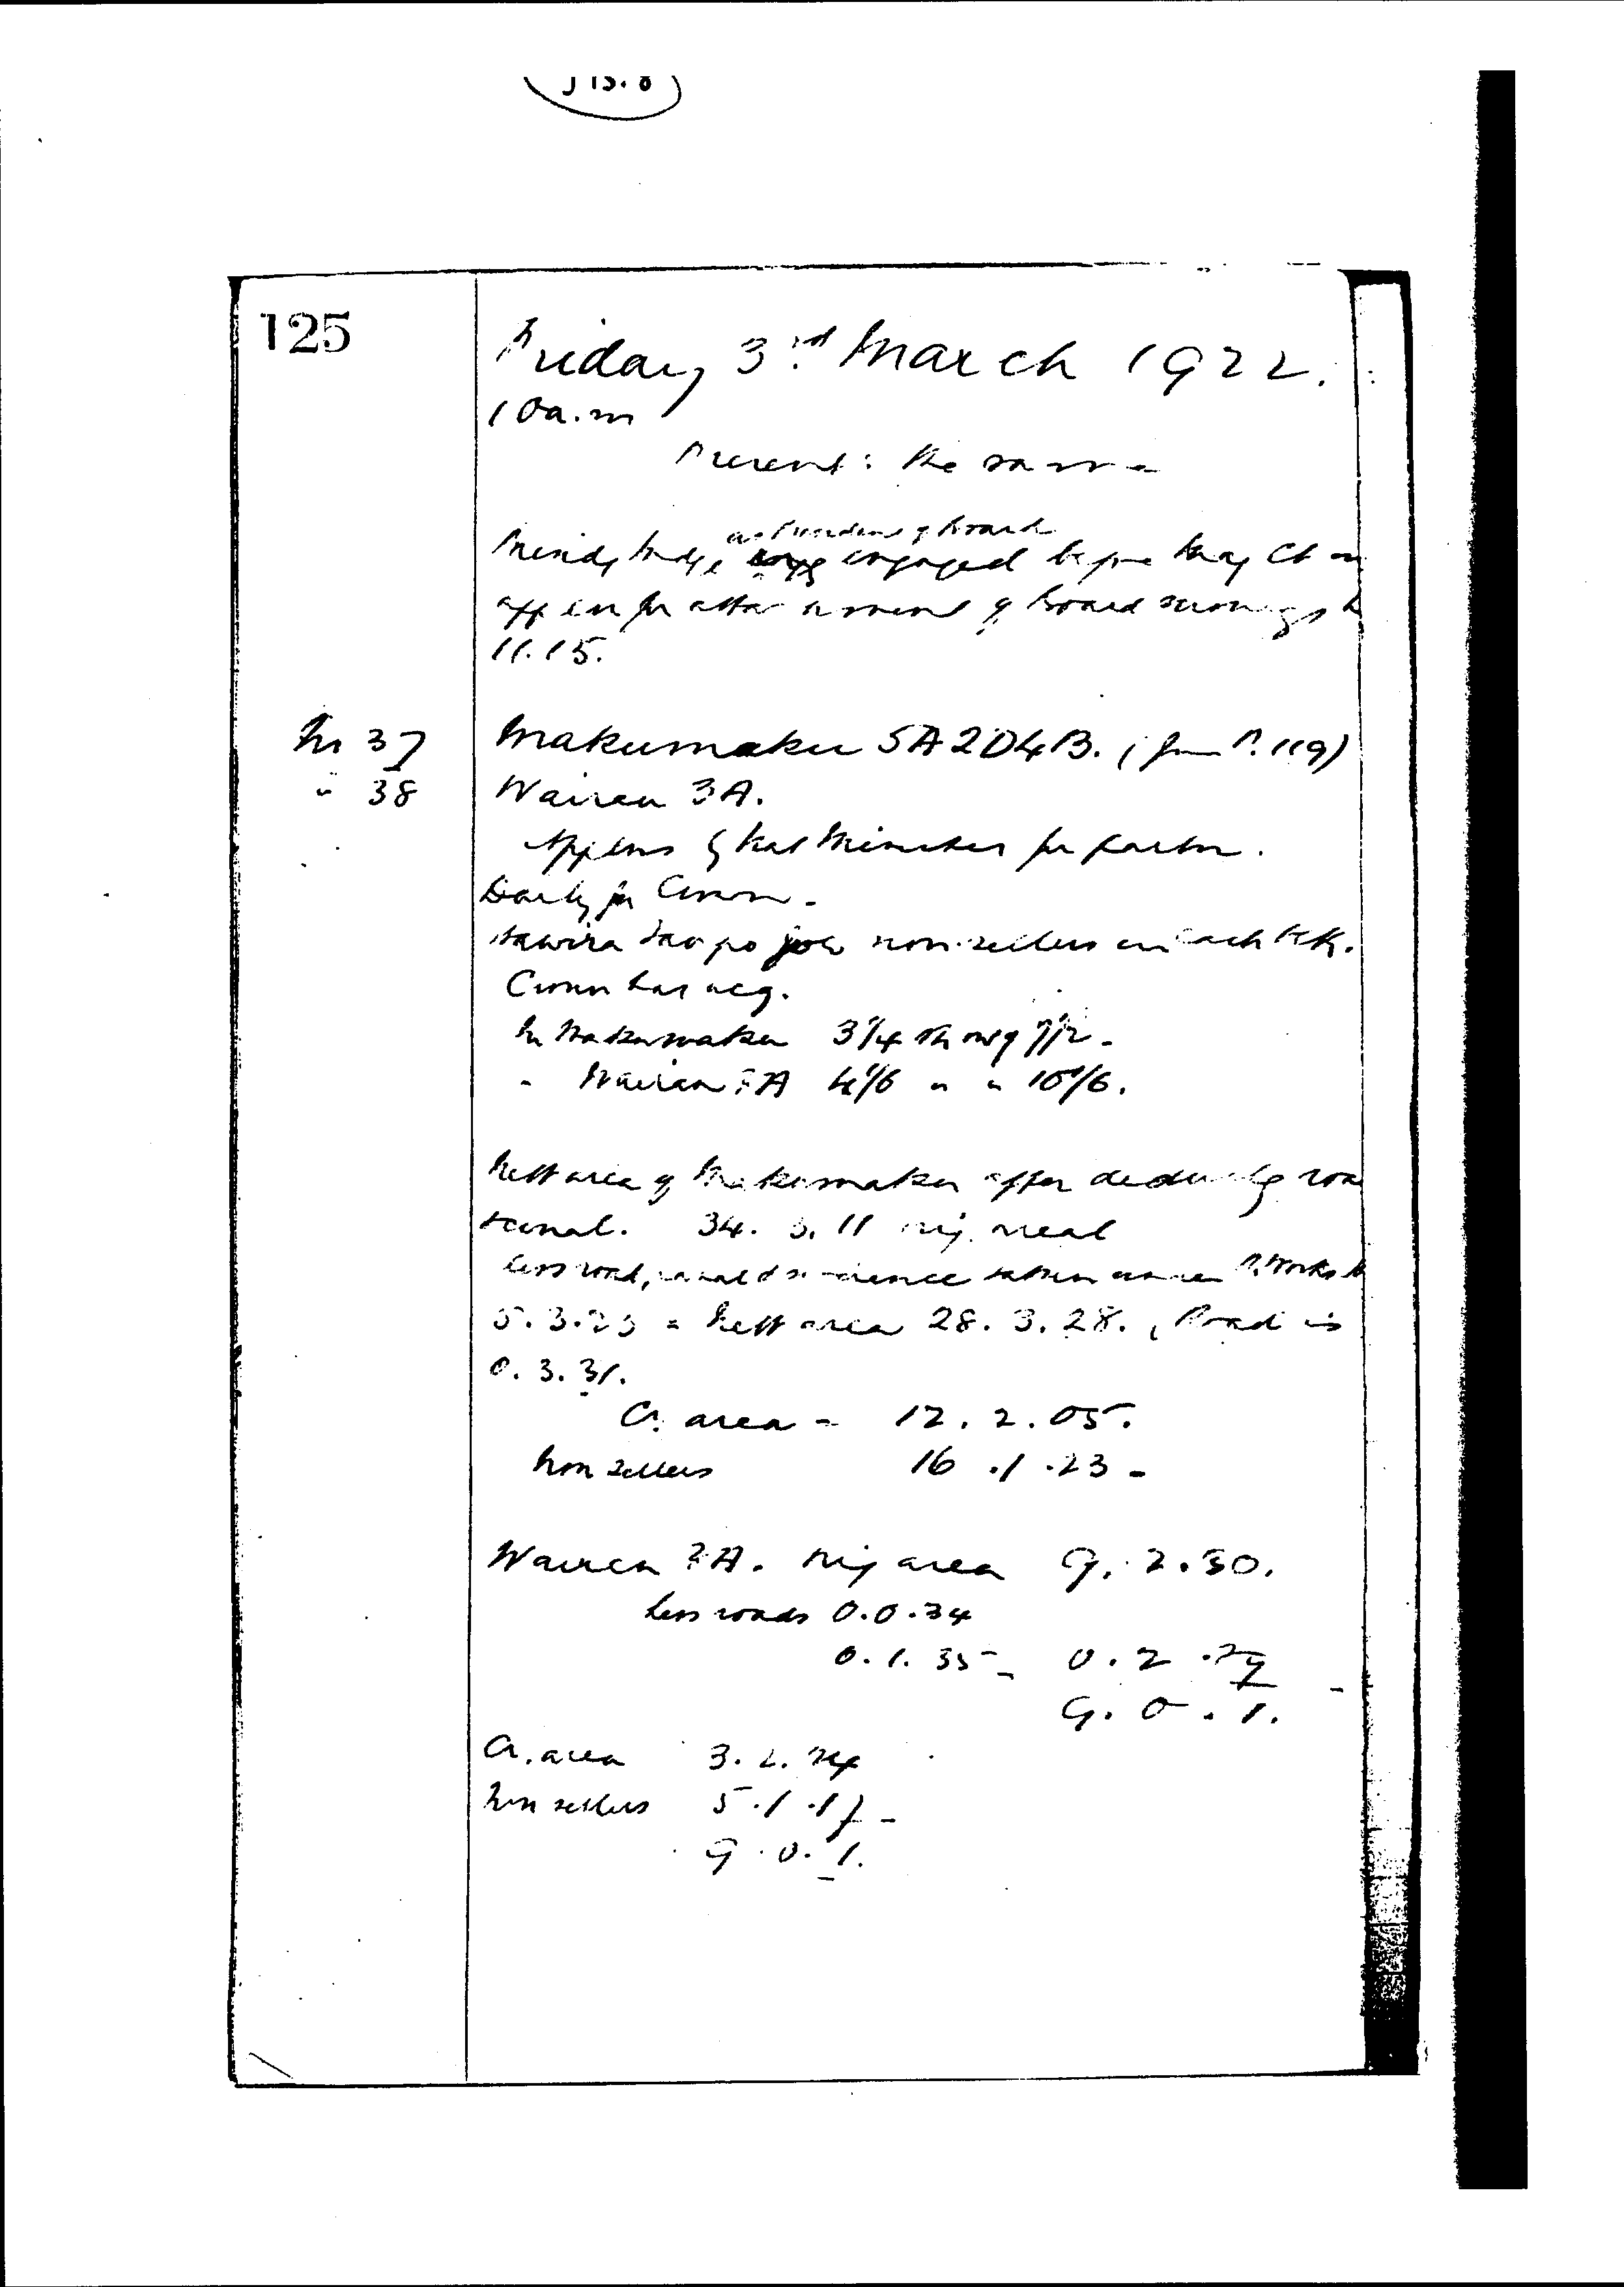 J 13. 8
125
Friday 3rd March 1922.
10 a.m
Present: the same
as President of Board
Presidg Judge engaged before Mag Ct on
appln for assessment of Board
11.15.
No 37 Makumaku 5A2D4B. (from P. 119)
" 38 Wairau 3A.
Applns of Nat Minister for partn.
Darby for Crown.
Tawira non-sellers in each blk.
Crown has acq.
In Makumaku 3 1/4 sh out of 7 1/2 -
" Wairau 3A 4 1/6 " " 10 1/6.
Nett area of Makumaku after deducting road
& canal. 34. 3. 11 orig. area
less road, canal taken under P. Works
5. 3. 23 = Nett area 28. 3. 28. , Road is
0. 3. 31.
Cr. area - 12. 2. 05.
Non sellers 16 . 1 . 23 -
Wairau 3A. orig area 9. 2. 30.
less roads 0. 0. 34
0. 1. 35 - 0. 2 . 29
9. 0 . 1.
Cr. area 3. 2. 24
Non sellers 5 . 1 . 17 -
9 . 0. 1.